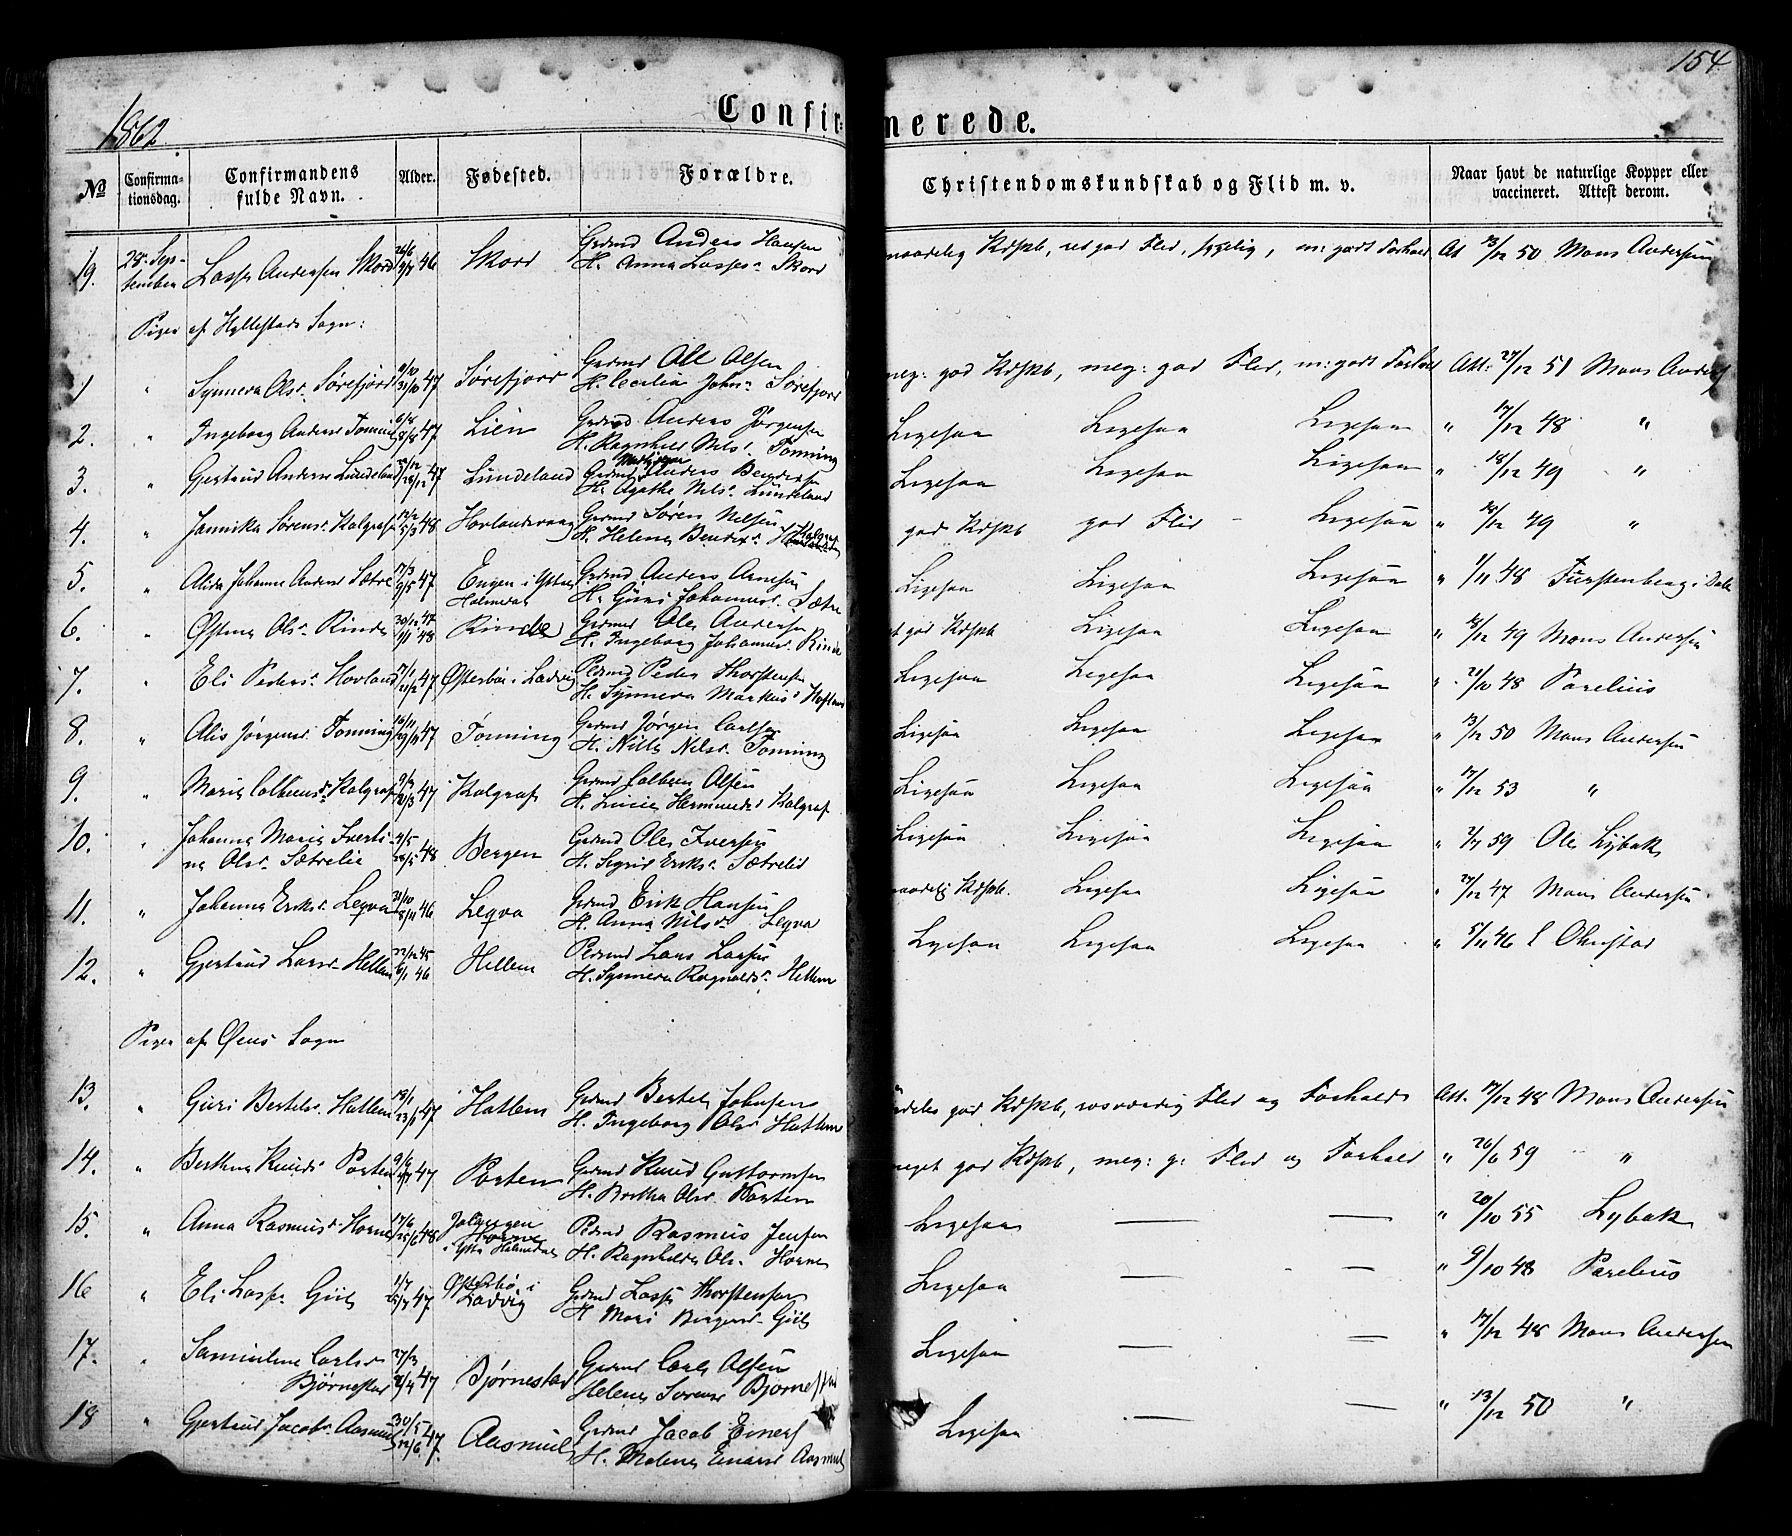 154
1862
Confirmerede.
No Confirmationsdag. Confirmandens fulde Navn. Alder. Fødested. Forældre. Christendomskundskab og Flid m. v. Naar havt de naturlige Kopper eller vaccineret. Attest derom.
19. 28. September Lasse Andersen Skord 46 Skord Gaarmd Anders Hansen
H. Anna Lasses. Skord maadelig Kdskb, ved god Flid, sygelig, m: godt Forhold At 13/12 50 Mons Andersen
Piger af Hyllestads Sogn:
1 " Synneva Olsr Sørefjord 9/10 31/10 47 Sørefjord Gaarmd Ole Olsen
H. Cecilia Johns. Sørefjord meg: god Kdskb, meg: god Flid, m: godt Forhold Att: 27/12 51 Mons Anders
2. " Ingeborg Andersr Tonning 6/8 8/8 47 Lien Gaarmd Anders Jørgensen
H. Ragnhild Nils. Tonning Ligesaa Ligesaa Ligesaa " 17/12 48 "
3. " Gjertrud Andersr Lündeland 28/12 47 Lündeland Gaarmd Anders Bendixsen
H. Agathe Nils. Lündeland Ligesaa Ligesaa Ligesaa " 18/12 49 "
4. " Jannika Sørens. Kalgraf 5/3 48 Hovlandsvaag Gaarmd Søren Nilsen
H. Helene Bendix. Kalgraf god Kdskb god Flid - Ligesaa " 18/12 49 "
5. " Alida Johanne Andersr Sætre 17/3 9/5 47 Engen i Ytre Holmedal Gaarmd Anders Arnesen
H. Guri Johannesr. Sætre Ligesaa Ligesaa Ligesaa " 1/11 48 Fürstenberg i Dale
6. " Østina Olsr. Rinde 30/12 47 1/1 48 Rinde Gaarmd Ole Andersen
H. Ingeborg Johannesr. Rinde god Kdskb Ligesaa Ligesaa " 18/12 49 Mons Andersen
7. " Eli Peders. Hovland 47 Østerbø i Ladvig Plsmd Peder Thorstensen
H. Synneva Markus. Ligesaa Ligesaa Ligesaa " 48 Parelius
8. " Alis Jørgensr. Tonning 16/11 47 Tonning Gaarmd Jørgen Carlsen
H. Nille Nilsr. Tonning Ligesaa Ligesaa Ligesaa " 13/12 50 Mons Andersen
9. " Maria Colbens. Kalgraf 47 Kalgraf Gaarmd Colben Olsen
H. Lucie Hermunds. Kalgraf Ligesaa Ligesaa Ligesaa " 17/12 53 "
10. " Johanna Maria Ivertina Olsr. Sætrelie 48 Bergen Gaarmd Ole Iversen
H. Sigrid Eriks. Sætrelid Ligesaa Ligesaa Ligesaa " 59 Ole Lybak
11. " Johanna Eriks. Leqva 46 Leqva Gaarmd Erik Hansen
H. Anna Nils. Leqva maadelig Kdskb. Ligesaa Ligesaa " 27/12 47 Mons Andersen
12. " Gjertrud Larsr. Hellem 22/12 45 6/1 46 Hellem Plsmd Lars Larsen
H. Synneva Ragnalds. Hellem Ligesaa Ligesaa Ligesaa " 5/11 46
Piger af Øens Sogn
13. " Guri Bertels. Hatlem 47 Hatlem Gaarmd Bertel Johnsen
H. Ingeborg Olsr Hatlem god Kdskb, rosværdig Flid og Forhold Att. 17/12 48 Mons Andersen
14. " Berthe Knuds. Porten 47 Porten Gaarmd Knud Guttormsen
H. Bertha Olsr. Porten meget god Kdskb, meg: g: Flid og Forhold " 26/6 59 "
15. " Anna Rasmus. Horne 17/6 25/6 48 Horne i Ytre Holmedal Plsmd Rasmus Jensen
H. Ragnhilde Ols. Horne Ligesaa — — " 20/10 55 Lybak
16 " Eli Lasse. Giil 1/7 47 Østerbø i Ladvig Gaarmd Lasse Thorstensen
H. Mari Børgesr. Giil Ligesaa — — " 9/10 48 Parelius
17. " Samueline Carlsr Bjørnestad 27/3 47 Bjørnestad Gaarmd Carl Olsen
Helene Sørensr Bjørnestad Ligesaa — — " 17/12 48 Mons Andersen
18 " Gjertrud Jacobs. Aasmul 30/5 12/6 47. Aasmul Gaarmd Jacob Einers
H. Malene Einarsr Aasmul Ligesaa — — " 13/12 50 "